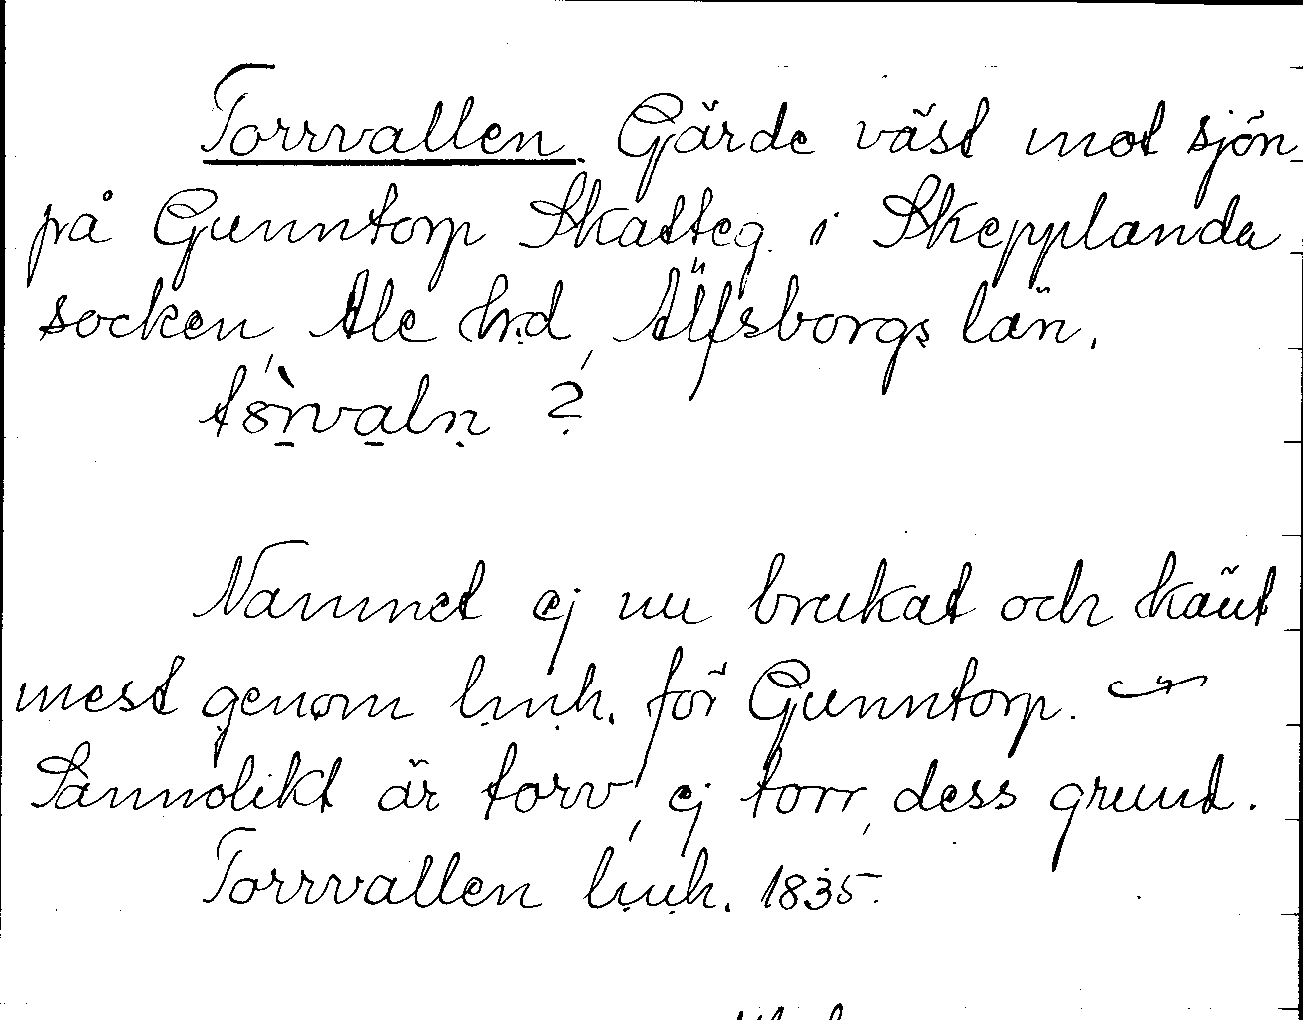 Torrvallen. Gärde väst mot sjön
på Gunntorp Skatteg. i Skepplanda
socken, Ale hrd, Älfsborgs län.
Namnet ej nu brukat och känt
mest genom l.u.h. för Gunntorp. —
Sannolikt är torv, ej torr, dess grund.
Torrvallen l.u.h. 1835.